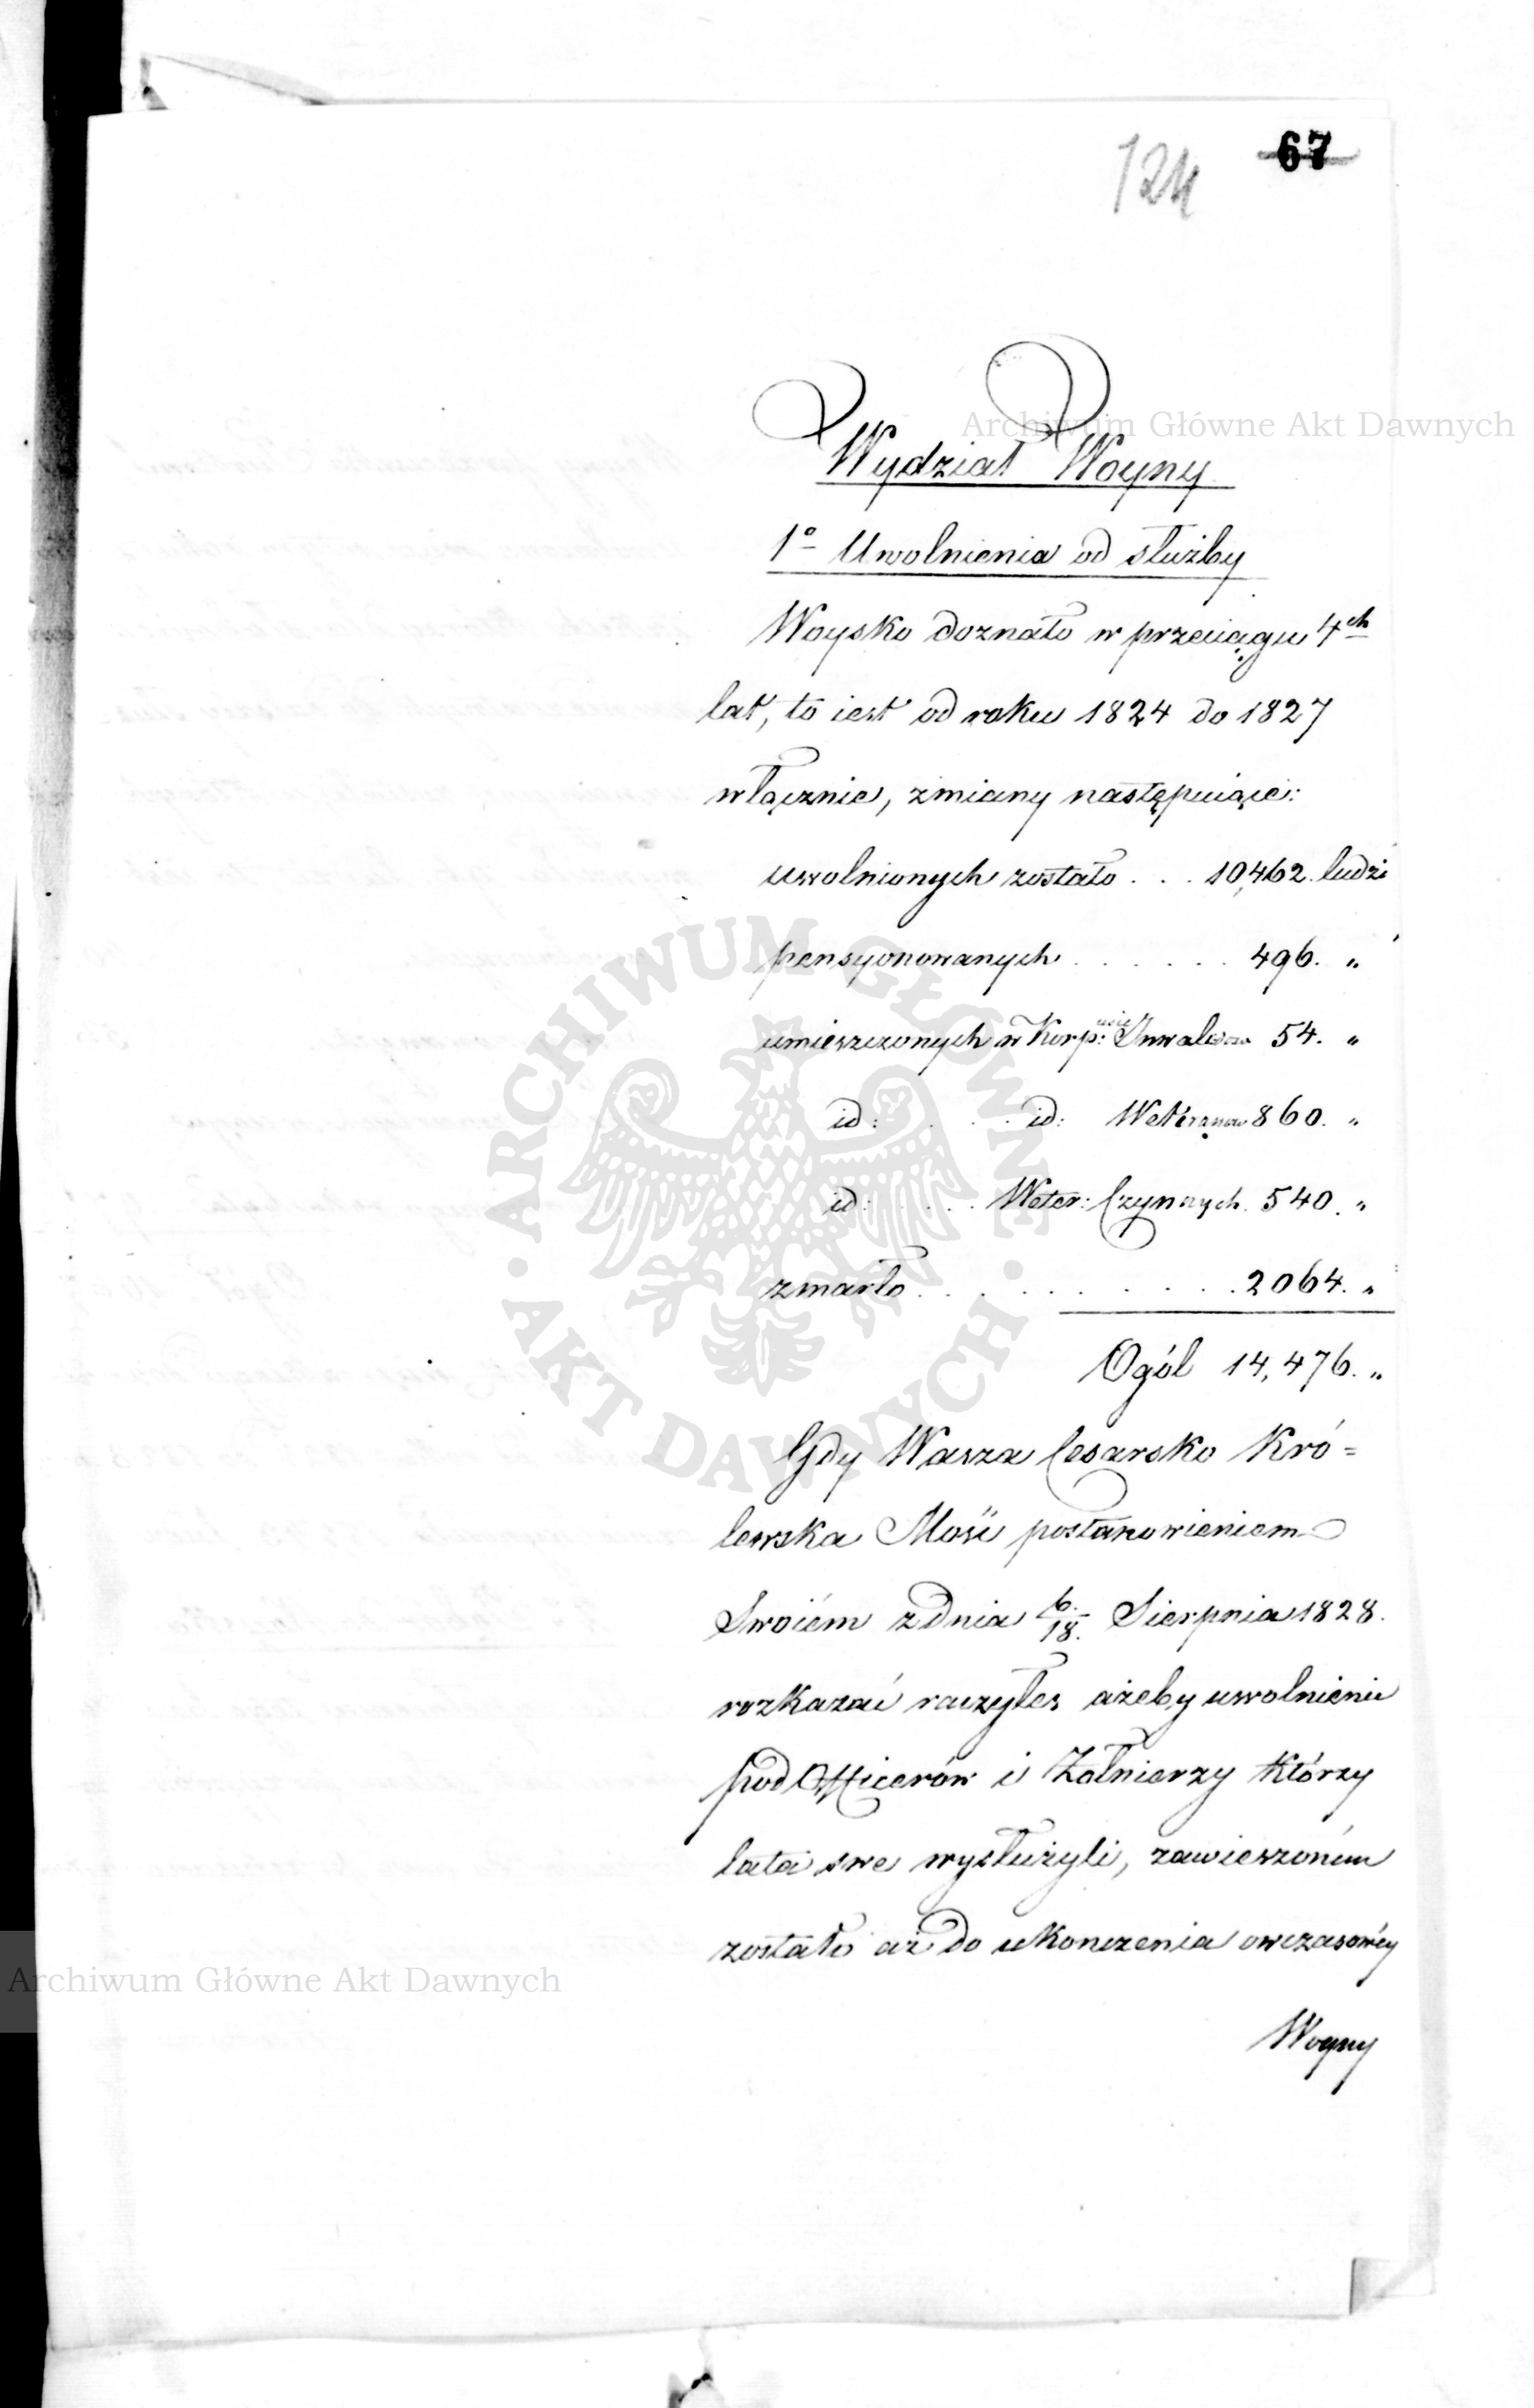 124 67
Archiwum Główne Akt Dawnych
Wydział Woyny
1º Uwolnienia od służby
Woysko doznało w przeciągu 4ch
lat, to iest od roku 1824 do 1827
włącznie, zmiany następuiące:
uwolnionych zostało . . . 10,462. ludzi
pensyonowanych . . . . . . 496. "
umieszczonych w Korp:usie Inwalidów 54. "
id: . . . . id: Weteranów 860. "
id: . . . . Weter: Czynnych. 540. "
zmarło . . . . . . . . . . 2064. "
Ogól 14,476. "
Gdy Wasza Cesarsko Kró=
lewska Mość postanowieniem
Swoiém z dnia 6/18. Sierpnia 1828.
rozkazać raczyłeś ażeby uwolnienie
pod Officerów i Żołnierzy którzy
lata swe wysłużyli, zawieszoném
zostało aż do ukonczenia owczasowéy
Woyny
ARCHIWUM GŁÓWNE AKT DAWNYCH
Archiwum Główne Akt Dawnych